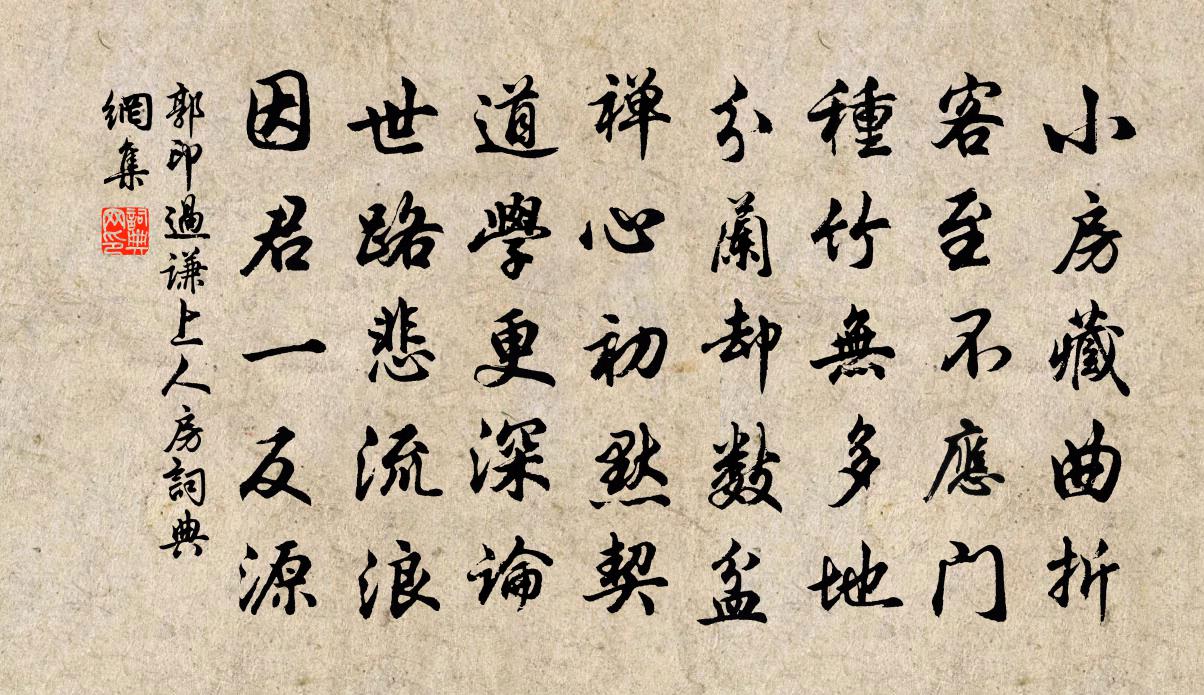 小房藏曲折
客至不應门
種竹無多地
分蘭却数盆
禅心初默契
道學更深論
世路悲流浪
因君一反源
郭印過谦上人房詞典
網集
詞典
网印